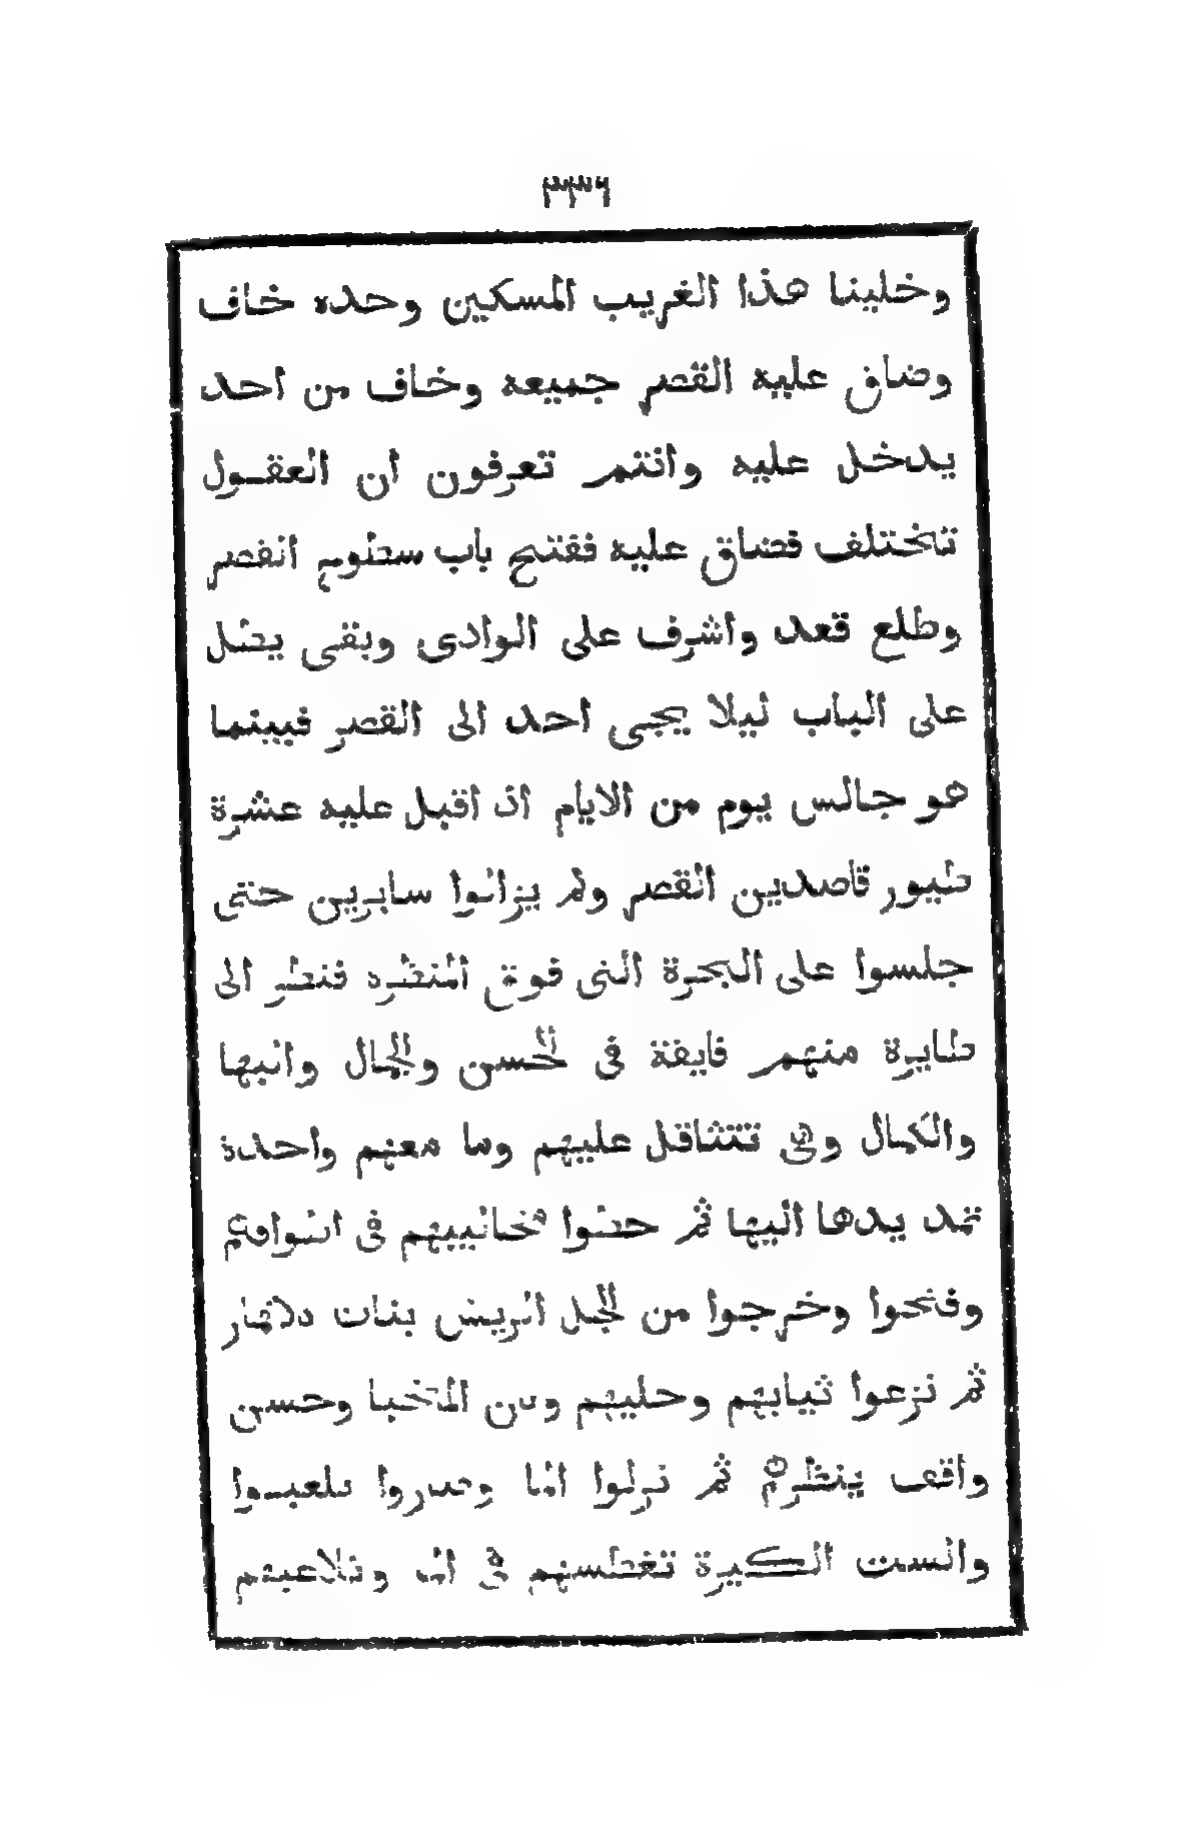 ٣٣٦
وخلينا هذا الغريب المسكين وحده خاف
وضاق عليه القصر جميعه وخاف من احد
يدخل عليه وانتم تعرفون ان العقول
تختلف فضاق عليه ففتح باب سطوح القصر
وطلع قعد واشرف على الوادى وبقى يطل
على الباب ليلا يجى احد الى القصر فبينما
هو جالس يوم من الايام اذ اقبل عليه عشرة
طيور قاصدين القصر ولم يزالوا سايرين حتى
جلسوا على البحرة التى فوق المنظره فنظر الى
طايرة منهم فايقة فى الحسن والجمال والبها
والكمال وهى تتثاقل عليهم وما معهم واحدة
تمد يدها اليها ثم حطوا مخاليبهم فى اطواقهم
وفتحوا وخرجوا من الجلد الريش بنات كالاقمار
ثم نزعوا ثيابهم وحليهم ومن المتخبا وحسن
واقف ينظرهم ثم نزلوا الما وصاروا يلعبوا
والست الكبيرة تغطسهم فى الما وتلاعبهم